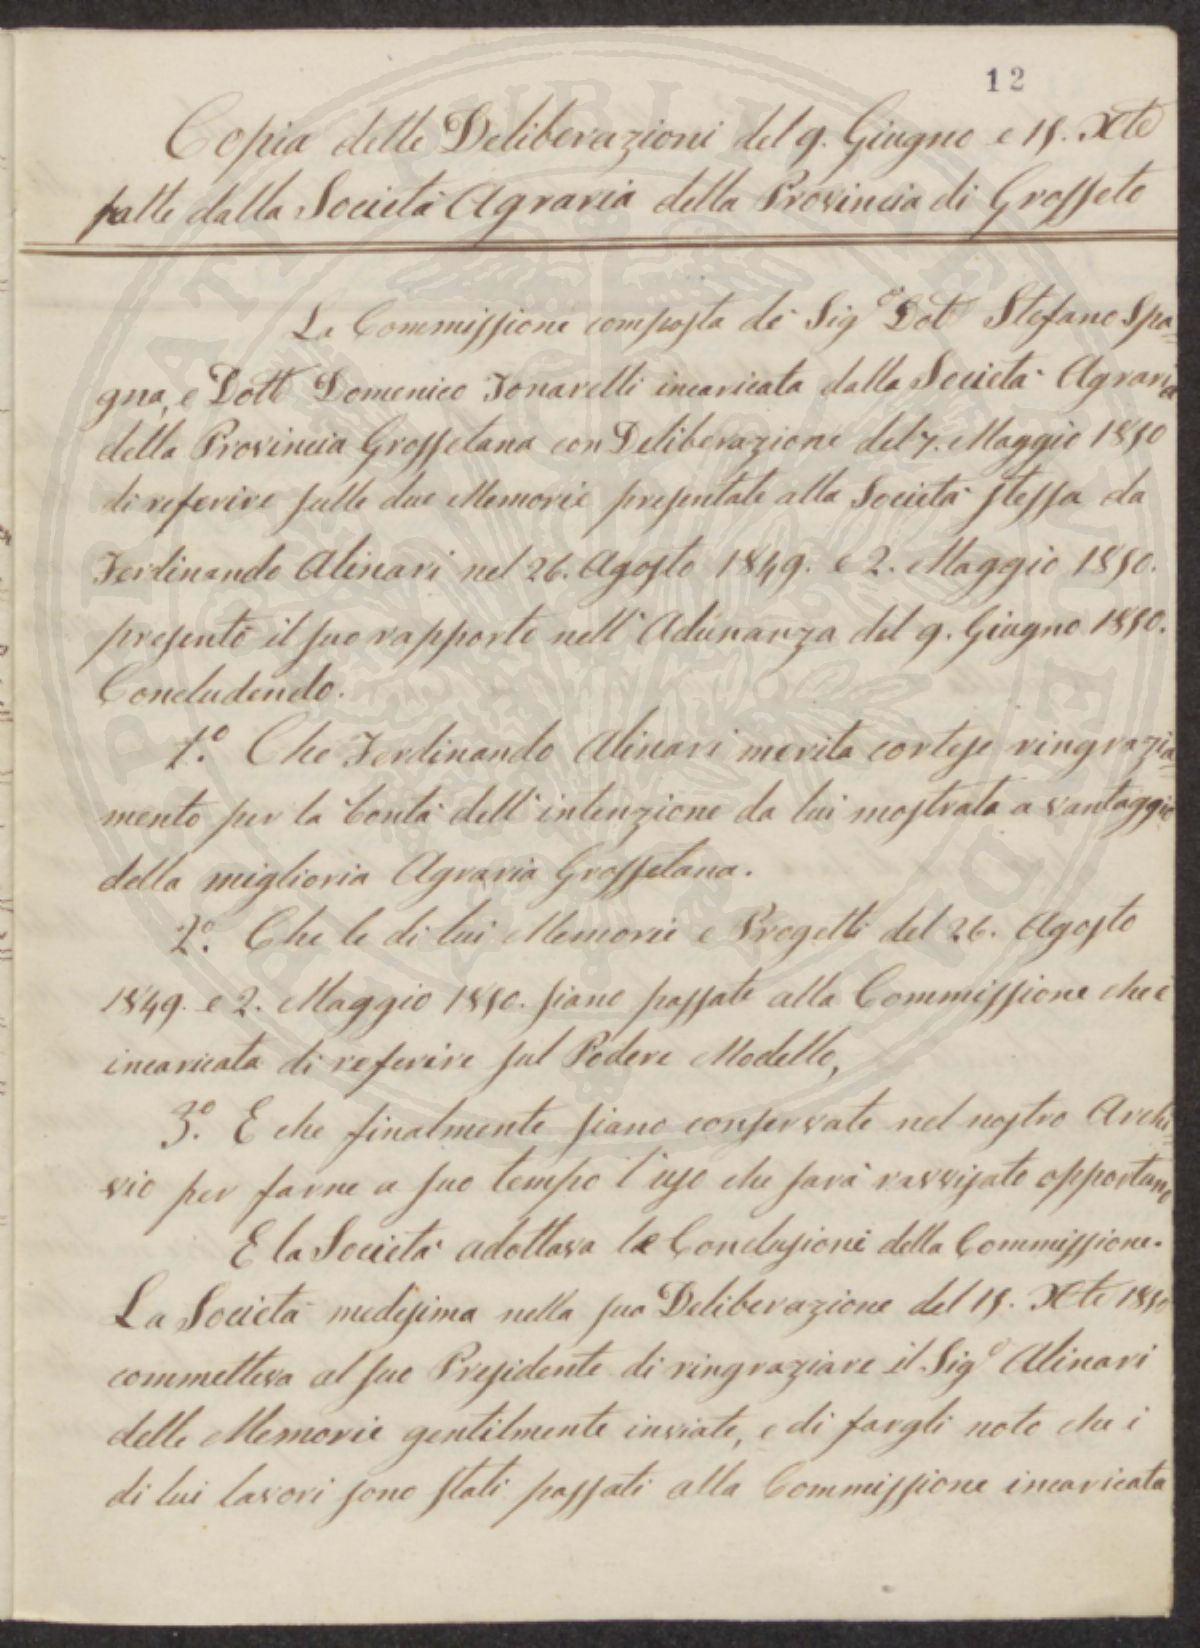 12
Copia delle Deliberazioni del 9. Giugno e 15. Xbre
fatte dalla Società Agraria della Provincia di Grosseto
La Commissione composta de' Sig.ri Dott. Stefano Spa=
gna, e Dott. Domenico Tonarelli incaricata dalla Società Agraria
della Provincia Grossetana con Deliberazione del 7. Maggio 1850
di referire sulle due Memorie presentate alla Società stessa da
Ferdinando Alinari nel 26. Agosto 1849. e 2. Maggio 1850.
presentò il suo rapporto nell'Adunanza del 9. Giugno 1850.
Concludendo.
1.° Che Ferdinando Alinari merita cortese ringrazia=
mento per la bontà dell'intenzione da lui mostrata a vantaggio
della miglioria Agraria Grossetana.
2.° Che le di lui Memorie e Progetti del 26. Agosto
1849. e 2. Maggio 1850. siano passate alla Commissione che è
incaricata di referire sul Podere Modello,
3.° E che finalmente siano conservate nel nostro Archi=
vio per farne a suo tempo l'uso che sarà ravvisato opportuno
E la Società adottava le Conclusioni della Commissione.
La Società medesima nella sua Deliberazione del 15. Xbre 1850
commetteva al suo Presidente di ringraziare il Sig.e Alinari
delle Memorie gentilmente inviate, e di fargli noto che i
di lui lavori sono stati passati alla Commissione incaricata